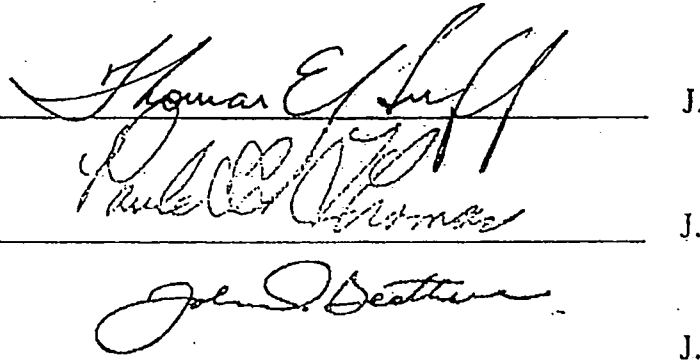 Thomas E. Huff J.
Paul C. Thomas J.
John S. J.